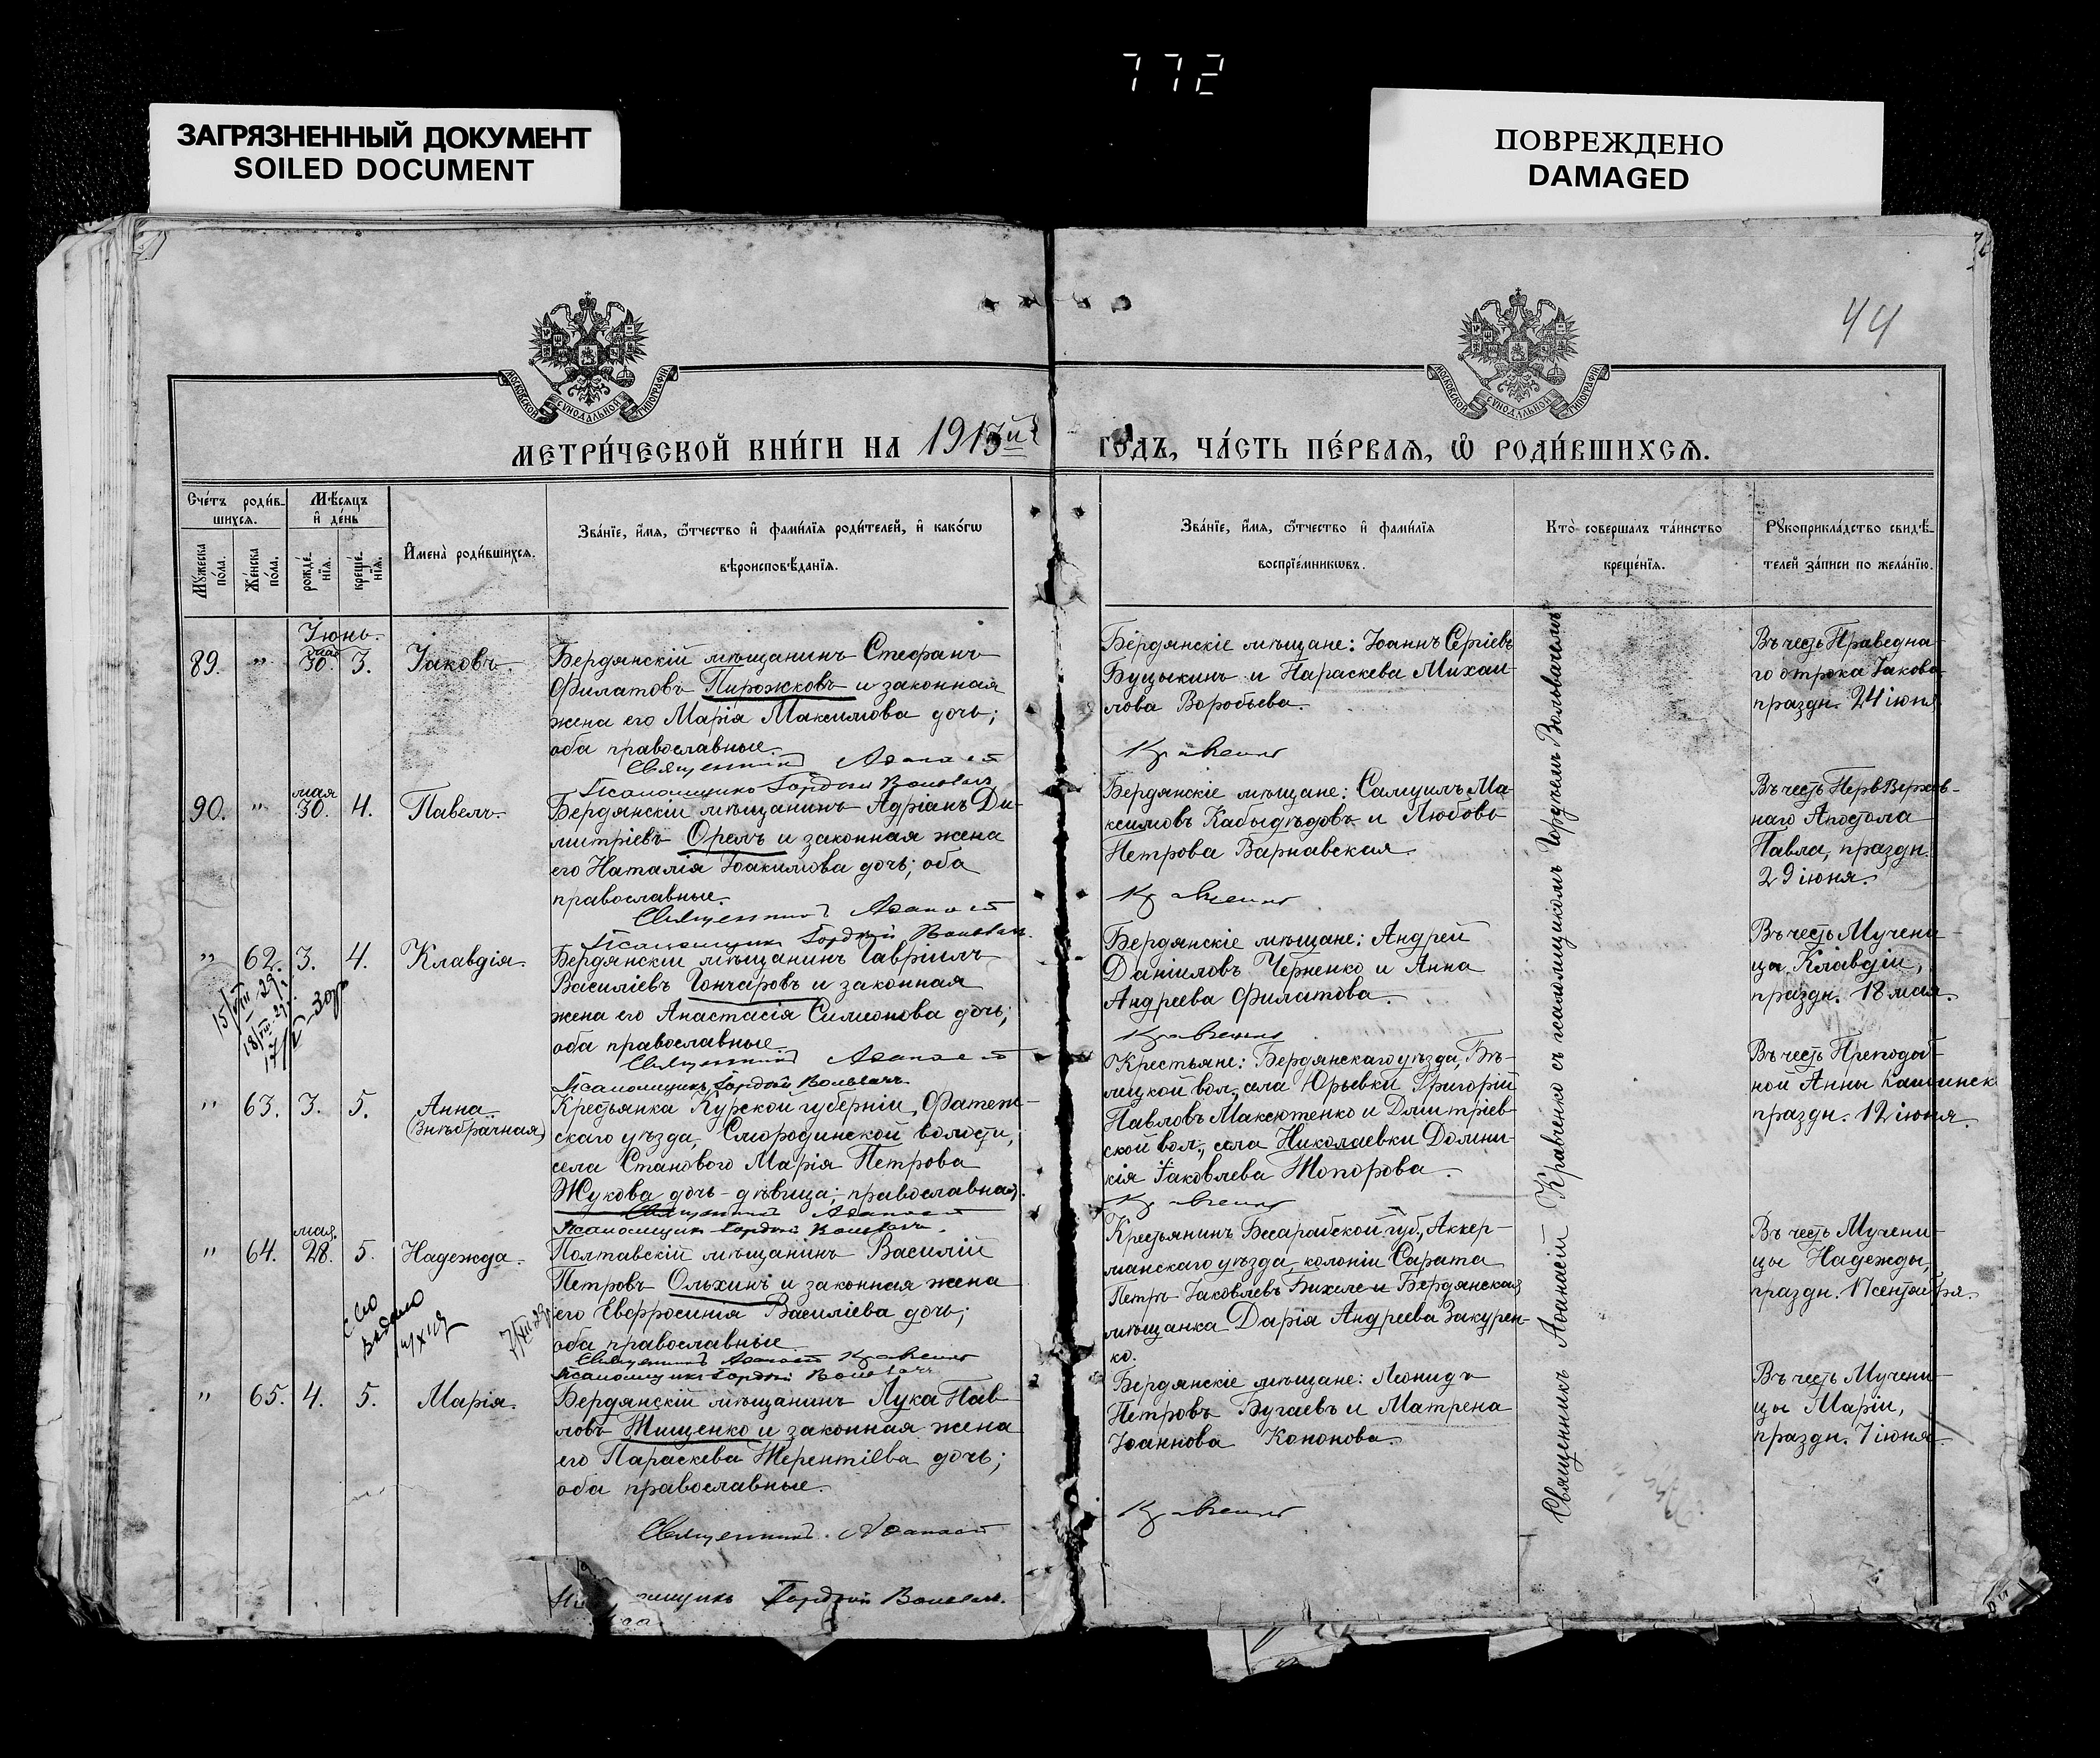 772
ЗАГРЯЗНЕННЫЙ ДОКУМЕНТ
SOILED DOCUMENT
ПОВРЕЖДЕНО
DAMAGED
44
МОСКОВСКОЙ СѴНОДАЛЬНОЙ ТИПОГРАФІИ
МОСКОВСКОЙ СѴНОДАЛЬНОЙ ТИПОГРАФІИ
МЕТРИ́ЧЕСКОЙ КНИ́ГИ НА 1913й
ГО́ДЪ, ЧА́СТЬ ПЕ́РВАѦ, Ѡ҆ РОДИ́ВШИХСѦ.
Сче́тъ роди́в-
шихся.
Мѣ́сяцъ
и҆ де́нь
Мꙋ́жеска по́ла.
Же́нска по́ла.
рожде́-
нїя.
креще́-
нїя.
И҆мена̀ роди́вшихся.
Зва́нїе, и҆́мя, ѻ҆́тчество и҆ фами́лїя роди́телей, и҆ како́гѡ
вѣроисповѣ́данїя.
Зва́нїе, и҆́мя, ѻ҆́тчество и҆ фами́лїя
воспрїе́мникѡвъ.
Кто̀ соверша́лъ та́инство
креще́нїя.
Рꙋкоприкла́дство свидѣ́-
телей за́писи по жела́нїю.
Іюнь.
89. " мая 30. 3. Іаковъ.
Бердянскій мѣщанинъ Стефанъ
Филатовъ Пирожковъ и законная
жена его Марія Максимова дочь;
оба православные.
Священникъ Афанасій
Псаломщикъ Гордій Воловачъ
Бердянскіе мѣщане: Іоаннъ Сергіевъ
Буцыкинъ и Параскева Михаи-
лова Воробьева.
Кравченко
Въ честь Праведна-
го отрока Іакова
праздн. 24 іюня
90. " мая 30. 4. Павелъ.
Бердянскій мѣщанинъ Адріанъ Ди-
митріевъ Орелъ и законная жена
его Наталія Іоакимова дочь; оба
православные.
Священникъ Афанасій
Псаломщикъ Гордій Воловачъ
Бердянскіе мѣщане: Самуилъ Ма-
ксимовъ Кабыдѣдовъ и Любовь
Петрова Варнавская.
Кравченко
Въ честь Первверхов-
наго Апостола
Павла, праздн.
29 іюня.
" 62. 3. 4. Клавдія.
15/VIII-29
18/VIII-29
Бердянскій мѣщанинъ Гавріилъ
Василіевъ Гончаровъ и законная
жена его Анастасія Симеонова дочь;
оба православные.
Священникъ Афанасій
Псаломщикъ Гордій Воловачъ
Бердянскіе мѣщане: Андрей
Даніиловъ Черненко и Анна
Андреева Филатова.
Кравченко
Въ честь Мучени-
цы Клавдіи,
праздн. 18 мая.
" 63. 3. 5. Анна.
(Внѣбрачная)
Крестьянка Курской губерніи, Фатеж-
скаго уѣзда, Смородинской волости,
села Станового Марія Петрова
Жукова дочь-дѣвица; православная.
Священникъ Афанасій
Псаломщикъ Гордій Воловачъ.
Крестьяне: Бердянскаго уѣзда, Бѣ-
лицкой вол., села Юрьевки Григорій
Павловъ Максютенко и Дмитріев-
ской вол., села Николаевки Домни-
кія Іаковлева Топорова.
Кравченко
Въ честь Преподоб-
ной Анны Кашинск
праздн. 12 іюня.
" 64. мая 28. 5. Надежда.
Полтавскій мѣщанинъ Василій
Петровъ Ольхинъ и законная жена
его Евфросинія Василіева дочь;
оба православные.
Священникъ Афанасій Кравченко
Псаломщикъ Гордій Воловачъ
Крестьянинъ Бесарабской губ., Аккер-
манскаго уѣзда, колоніи Сарата
Петръ Іаковлевъ Бихеле и Бердянская
мѣщанка Дарія Андреева Закурен-
ко.
Въ честь Мучени-
цы Надежды,
праздн. 17 сентября.
" 65. 4. 5. Марія.
Бердянскій мѣщанинъ Лука Пав-
ловъ Тищенко и законная жена
его Параскева Терентіева дочь;
оба православные.
Священникъ Афанасій
Гордій Воловачъ.
Бердянскіе мѣщане: Леонидъ
Петровъ Бугаевъ и Матрена
Іоаннова Кононова.
Кравченко
Въ честь Мучени-
цы Маріи,
праздн. 7 іюня.
Священникъ Афанасій Кравченко съ псаломщикомъ Гордіемъ Воловачемъ